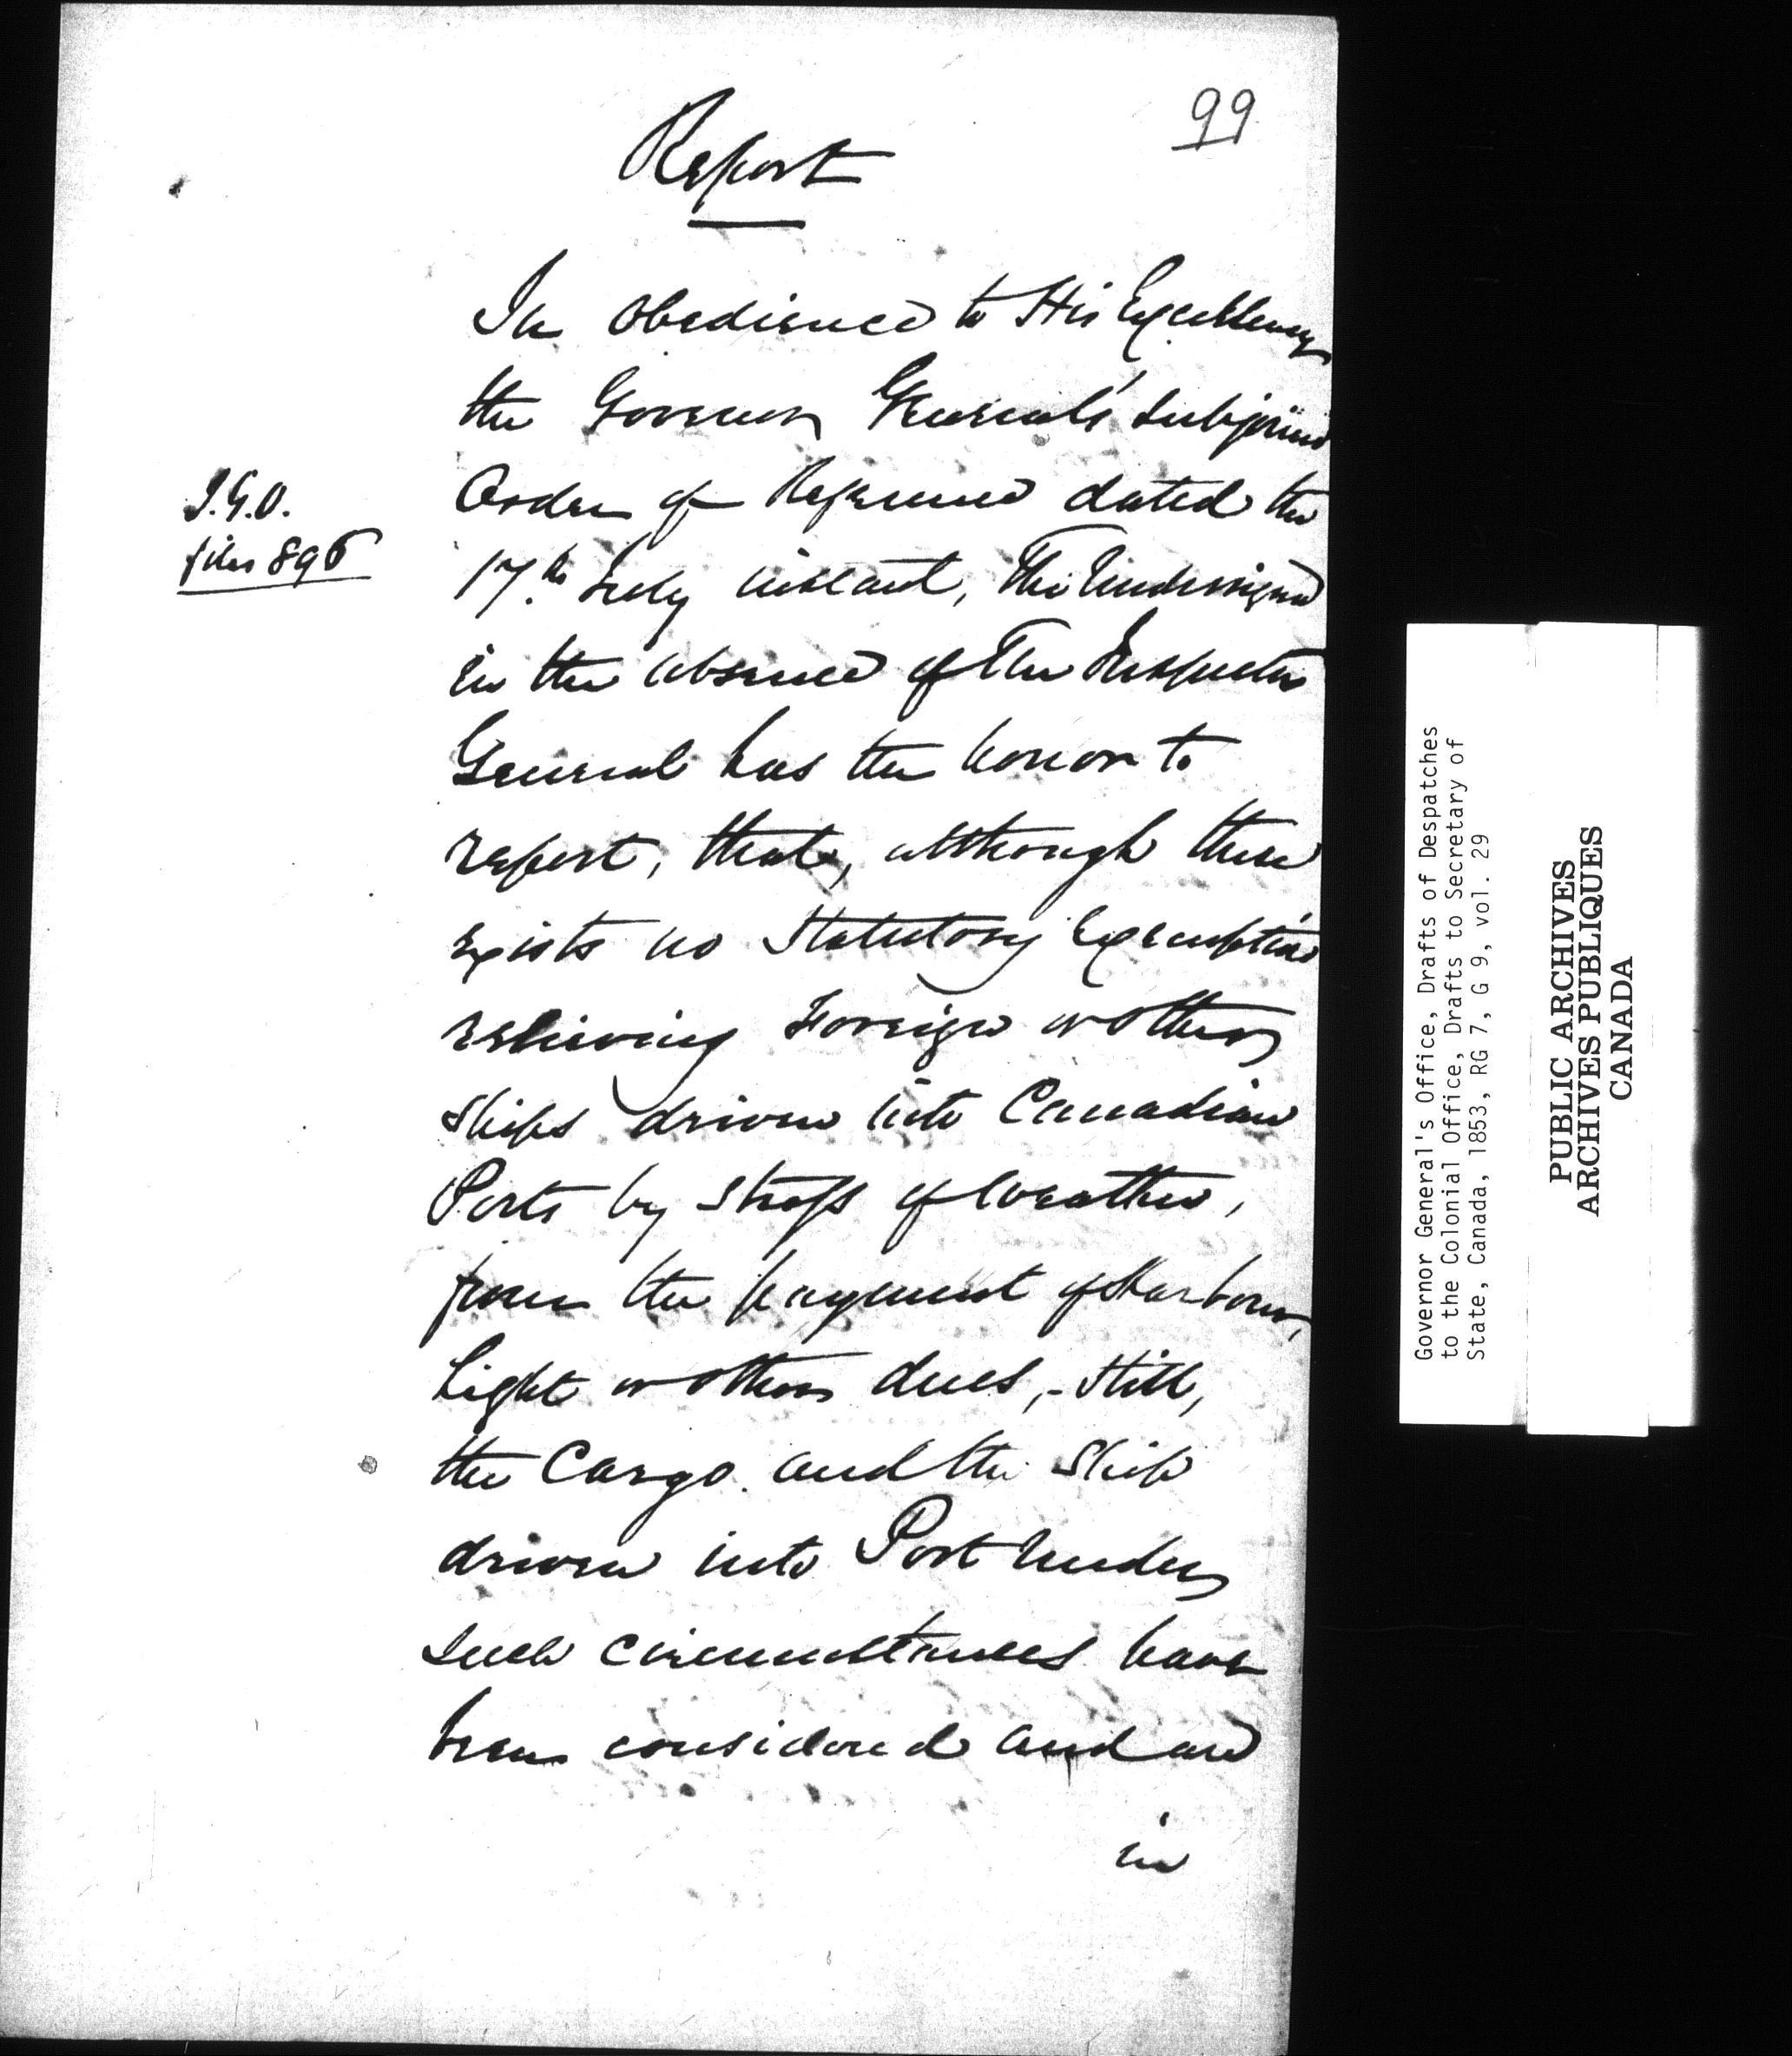 99
Report
In obedience to His Excellency
the Governor General's subjoined
Order of Reference dated the
I.G.O.
files 896
17.th July instant, The Undersigned
in the absence of The Inspector
General has the honor to
report, that, although there
exists no Statutory Exemption
relieving Foreign or other
Ships driven into Canadian
Ports by stress of weather,
from the payment of Harbour,
Light or other dues,- still,
the Cargo and the Ship
driven into Port under
such circumstances have
been considered and are
in
Governor General's Office, Drafts of Despatches
to the Colonial Office, Drafts to Secretary of
State, Canada, 1853, RG 7, G 9, vol. 29
PUBLIC ARCHIVES
ARCHIVES PUBLIQUES
CANADA